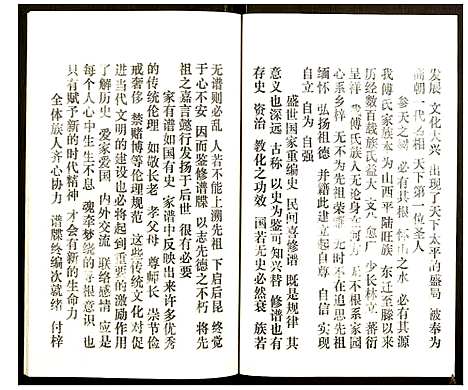 发展 文化大兴 出现了天下太平的盛局 被奉为
商朝一代 相 天下第一位圣人
参天之 必有其根 之水 必有其源
我傅氏家族 为山西平陆旺族 东迁至滕以来
历经数百载族氏益大 文 少长林立 蕃衍
呈祥 傅氏族人无论身 何 无不根系家园
心系乡梓 无不为先祖荣 无 时不在追思先祖
缅怀 弘扬祖德 并藉此建立起
自立 自为 自强
盛世国家重编史 民间喜修谱 既是规律 其
意义也深远 古称 以史为鉴可知兴替 修谱有
存史 资治 教化之功效 国若无史必然衰 族若
无谱则必乱 人若不能上溯先祖 下启后昆 终觉
于心不安 因而鉴修谱牒 以志先德之不朽 将先
祖之嘉言懿行发扬于后世 很有必要
家有谱如国有史 家谱中反映出来许多优秀
的传统伦理 如敬长老 孝父母 尊师长 崇节俭
戒奢侈 禁赌博等伦理规范 这些传统文化对促
进当代文明的建设也必将起到重要的激励作用
了解历史 爱家爱国 内外交流 联络感情 应是
每个人心中生生不息 魂牵梦绕的寻根意识 也
只有赋予新的时代精神 才会有新的生命力
全体族人齐心协力 谱牒终编次就绪 付梓